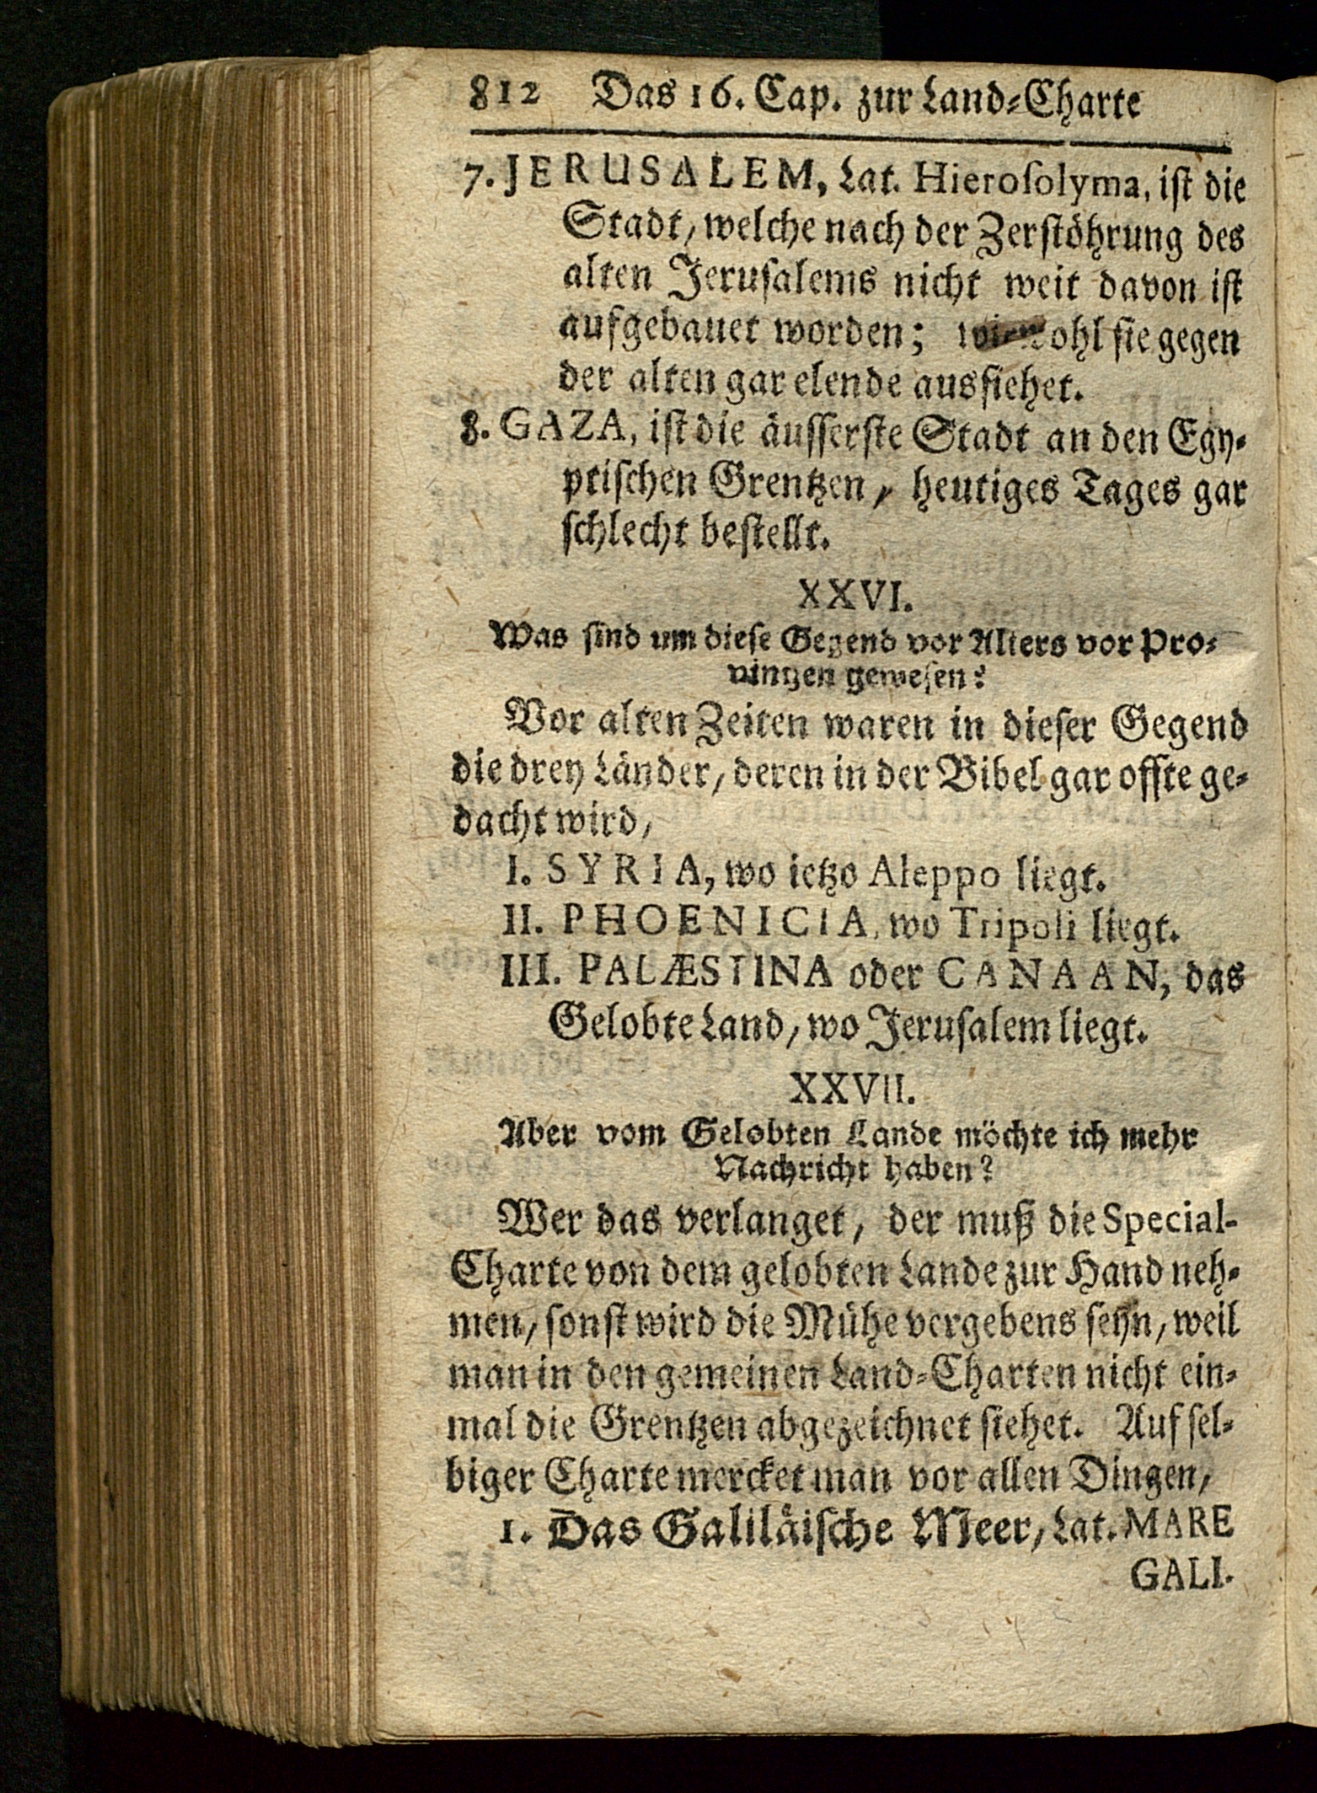 812 Das 16. Cap. zur Land-Charte
7. JERUSALEM, Lat. Hierosolyma, ist die
Stadt, welche nach der Zerstöhrung des
alten Jerusalems nicht weit davon ist
aufgebauet worden; wiewohl sie gegen
der alten gar elende aussiehet.
8. GAZA, ist die äusserste Stadt an den Egy-
ptischen Grentzen, heutiges Tages gar
schlecht bestellt.
XXVI.
Was sind um diese Gegend vor Alters vor Pro-
vintzen gewesen?
Vor alten Zeiten waren in dieser Gegend
die drey Länder, deren in der Bibel gar offte ge-
dacht wird,
I. SYRIA, wo ietzo Aleppo liegt.
II. PHOENICIA, wo Tripoli liegt.
III. PALÆSTINA oder CANAAN, das
Gelobte Land, wo Jerusalem liegt.
XXVII.
Aber vom Gelobten Lande möchte ich mehr
Nachricht haben?
Wer das verlanget, der muß die Special-
Charte von dem gelobten Lande zur Hand neh-
men, sonst wird die Mühe vergebens seyn, weil
man in den gemeinen Land-Charten nicht ein-
mal die Grentzen abgezeichnet siehet. Auf sel-
biger Charte mercket man vor allen Dingen,
1. Das Galiläische Meer, Lat. MARE
GALI-